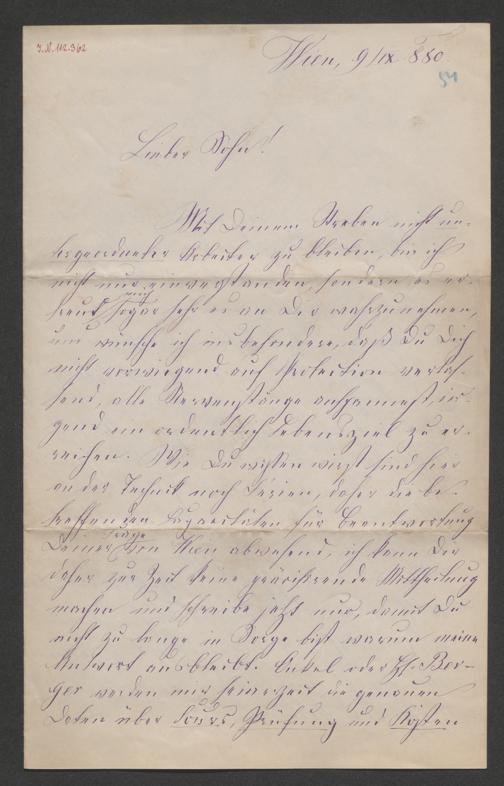 I.N. 112.362
Wien, 9/IX 880.
54
Lieber Sohn!
Mit Deinem Streben nicht un-
tergeordneter Arbeiter zu bleiben, bin ich
nicht nur einverstanden, sondern es er-
freut mich sogar sehr es an Dir wahrzunehmen,
und wünsche ich insbesondere, daß Du Dich
nicht vorwiegend auf Protection verlas-
send, alle Nervenstränge anspannest, ir-
gend ein ordentlich Lebensziel zu er-
reichen. Wie Du wissen wirst sind hier
an der Technik noch Ferien, daher die be-
treffenden Capacitäten für Beantwortung
Deiner Frage von Wien abwesend, ich kann Dir
daher zur Zeit keine präcisirende Mittheilung
machen und schreibe jetzt nur, damit Du
nicht zu lange in Sorge bist warum meine
Antwort ausbleibt. Onkel oder H. Ber-
ger werden mir seinerzeit die genauen
Daten über Cours, Prüfung und Kosten